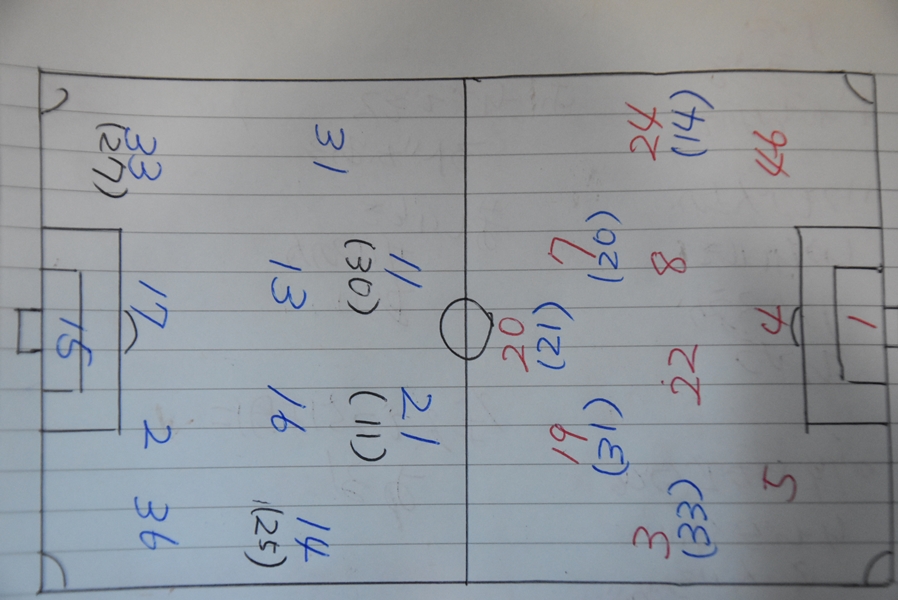 31
33
(27)
11
(30)
13
17
15
21
(11)
16
2
14
(25)
36
24
(14)
46
7
(20)
8
20
(21)
4
1
22
19
(31)
5
3
(33)